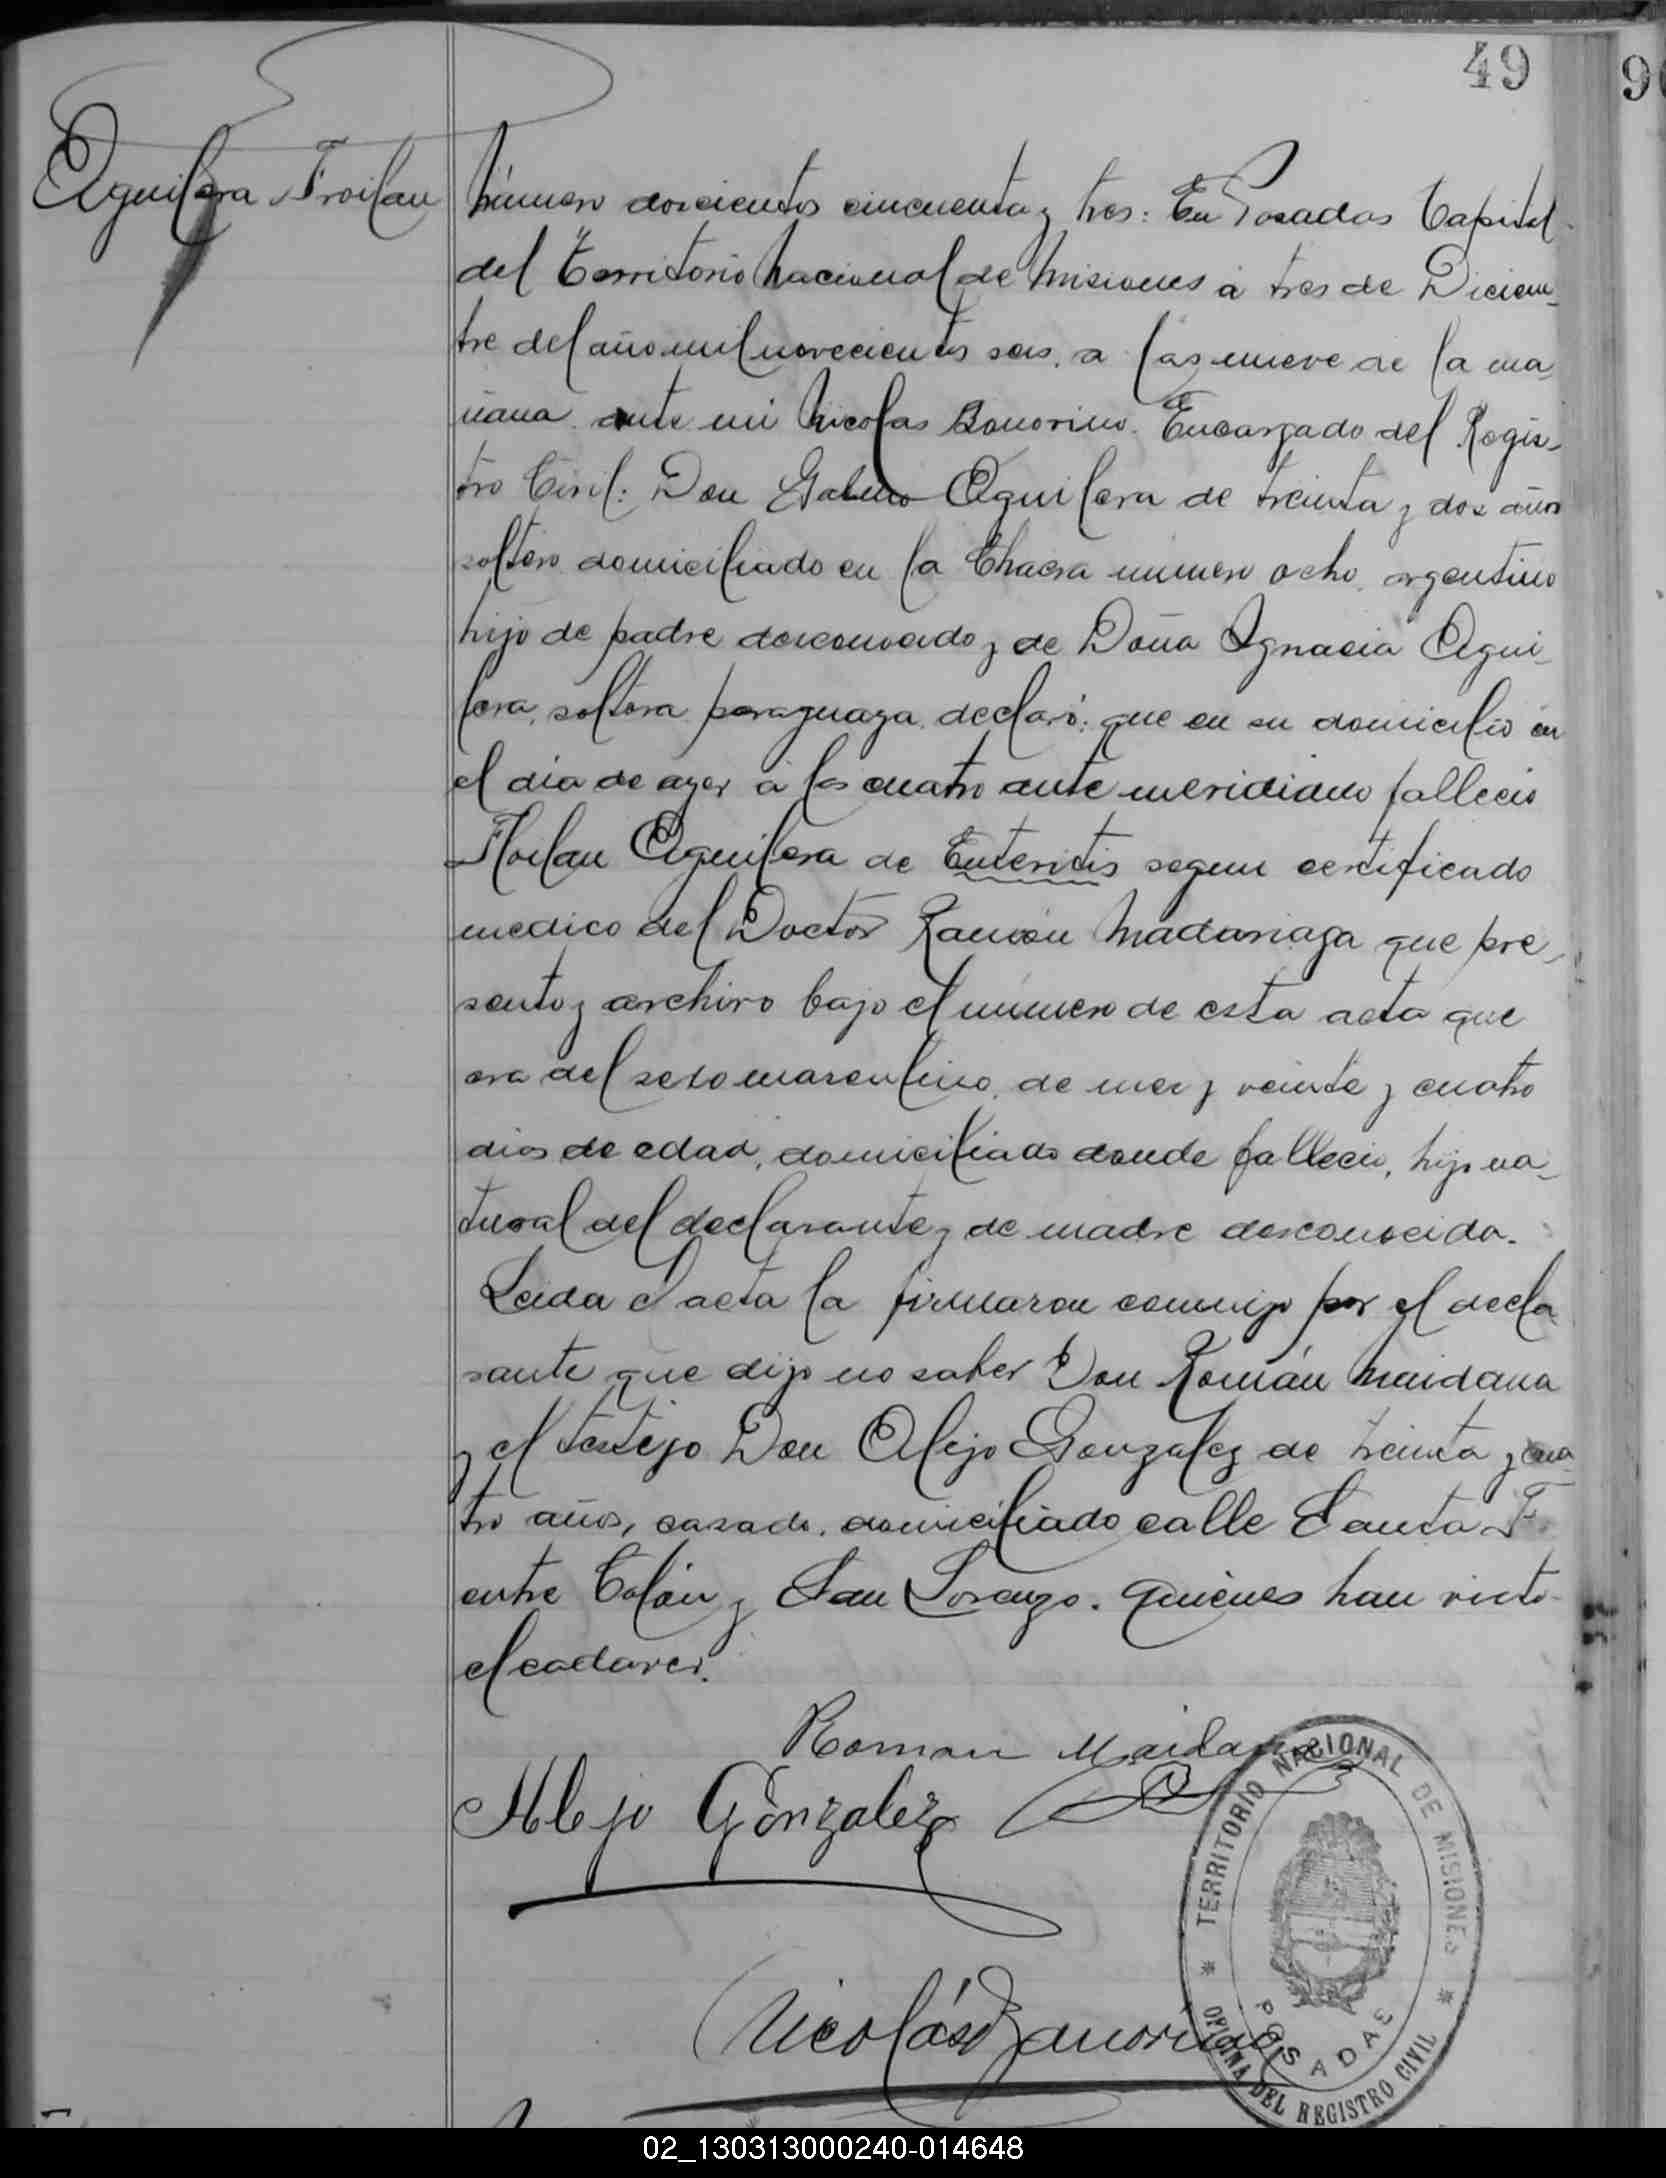 49
9
Aguilera Froilan
Número doscientos cincuenta y tres: En Posadas Capital
del Territorio Nacional de Misiones á tres de Diciem-
bre del año mil novecientos seis, a las nueve de la ma-
ñana ante mi Nicolas Bonorino Encargado del Regis-
tro Civil: Don Aguilera de treinta y dos años
soltero domiciliado en la Chacra número ocho, argentino
hijo de padre desconocido y de Doña Ignacia Agui-
lera, soltera paraguaya declaró: que en su domicilio en
el dia de ayer á las cuatro ante meridiano fallecio
Floilan Aguilera de Enteritis segun certificado
medico del Doctor Ramón Madariaga que pre-
sento y archivo bajo el número de esta acta que
era del sexo masculino, de mes y veinte y cuatro
dias de edad, domiciliado donde fallecio, hijo na-
tural del declarante y de madre desconocida.
Leida el acta la firmaron conmigo por el decla
rante que dijo no saber Don Román Maidana
y el testigo Don Alejo Gonzalez de treinta y cua
tro años, casado, domiciliado calle Santa F
entre Colón y San Lorenzo. quienes han visto
el cadaver.
Roman Maidana
Alejo Gonzalez
Nicolás Bonorino
TERRITORIO NACIONAL DE MISIONES
POSADAS
OFICINA DEL REGISTRO CIVIL
02_130313000240-014648